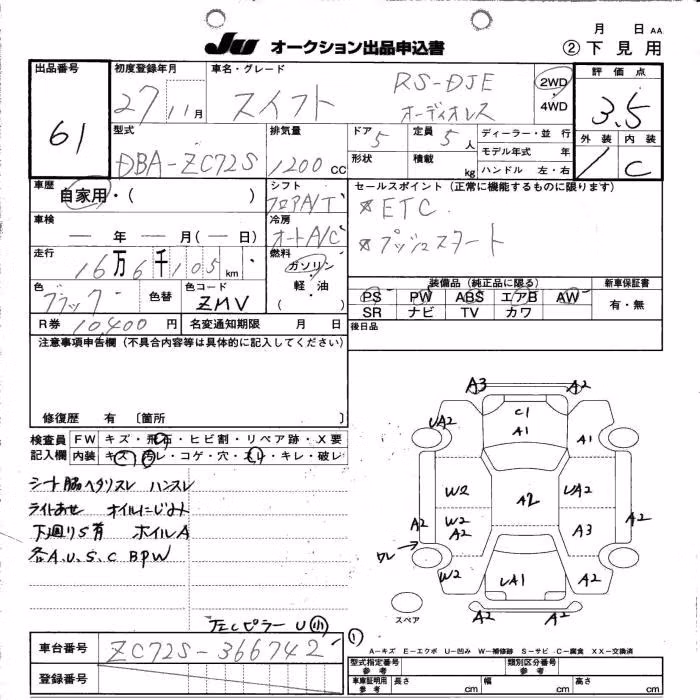 月 日 AA
JU オークション出品申込書 ② 下見用
出品番号 初度登録年月 車名・グレード 評価点
61 27 11月 スイフト RS-DJE オーディオレス 2WD 4WD 3.5
型式 排気量 ドア 5 定員 5人 ディーラー・並行 外装 内装
DBA-ZC72S 1200cc 形状 積載 kg モデル年式 年 C
ハンドル 左・右
車歴 自家用・( ) シフト フロアA/T セールスポイント(正常に機能するものに限ります)
車検 ― 年 ― 月(― 日) 冷房 オートA/C ☆ETC
走行 16万6千105km 燃料 ガソリン 軽・油 ( ) ☆プッシュスタート
色 ブラック 色替 色コード ZMV
装備品(純正品に限る) 新車保証書
PS PW ABS エアB AW 有・無
SR ナビ TV カワ
R券 10,400円 名変通知期限 月 日 後日品
注意事項申告欄(不具合内容等は具体的に記入してください)
修復歴 有 〔箇所 〕
検査員 FW キズ・飛石・ヒビ割・リペア跡・X要
記入欄 内装 キズ・汚レ・コゲ・穴・スレ・キレ・破レ
シート脇ヘタリスレ ハンスレ
ライトあせ オイルにじみ
下廻りS有 ホイルA
各A.U.S.C BPW
左Cピラー U小
A3 A2
C1
UA2 A1 A1
W2 A2 UA2
A2 W2 A2 A3 A2
ワレ
W2 UA1 A2
スペア A2 A2
①
車台番号 ZC72S-366742
A-キズ E-エクボ U-凹み W-補修跡 S-サビ C-腐食 XX-交換済
登録番号
型式指定番号 参考 類別区分番号 参考
車庫証明用 参考 長さ cm 幅 cm 高さ cm